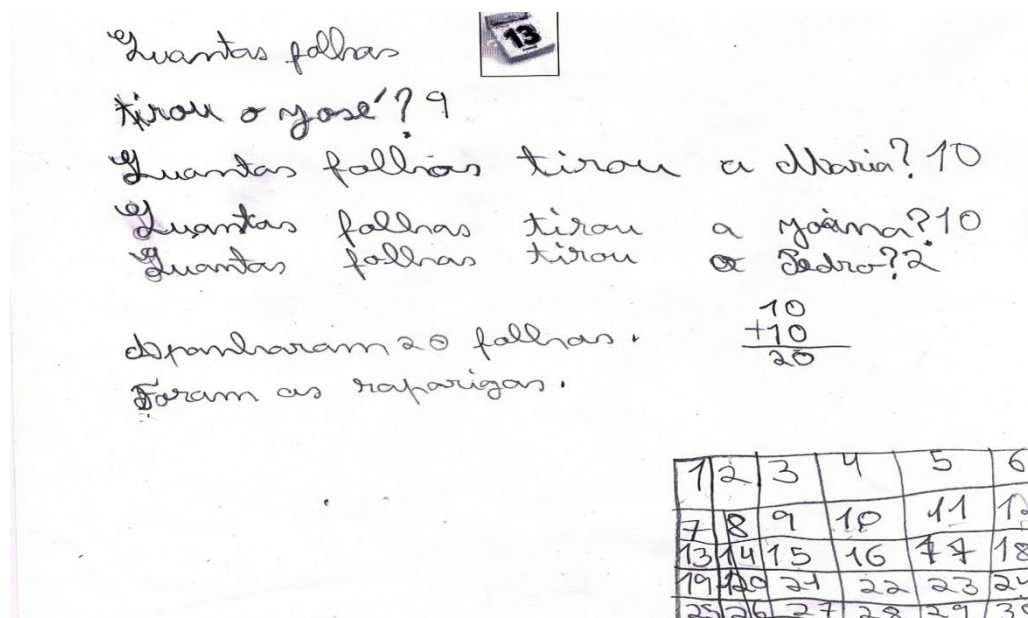 13
Quantas folhas
tirou o José? 9
Quantas folhas tirou a Maria? 10
Quantas folhas tirou a Joana? 10
Quantas folhas tirou o Pedro? 2
Apanharam 20 folhas.
Foram as raparigas.
10
+10
20
1 2 3 4 5 6
7 8 9 10 11 12
13 14 15 16 17 18
19 20 21 22 23 24
25 26 27 28 29 30